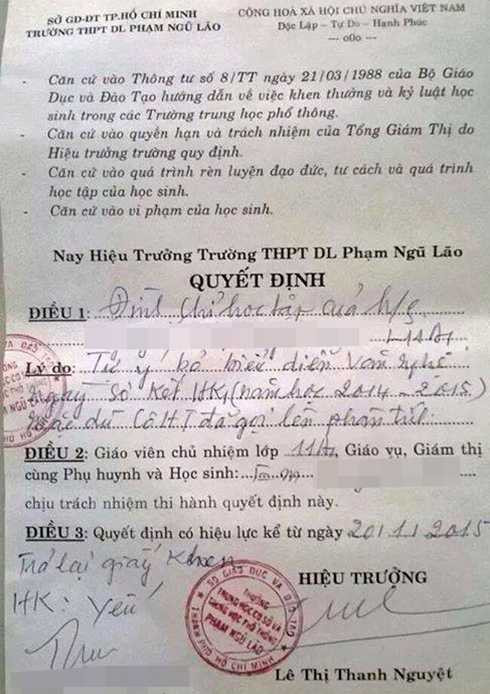 SỞ GD-ĐT TP.HỒ CHÍ MINH
TRƯỜNG THPT DL PHẠM NGŨ LÃO
CỘNG HOÀ XÃ HỘI CHỦ NGHĨA VIỆT NAM
Độc Lập - Tự Do - Hạnh Phúc
--- o0o ---
- Căn cứ vào Thông tư số 8/TT ngày 21/03/1988 của Bộ Giáo
Dục và Đào Tạo hướng dẫn về việc khen thưởng và kỷ luật học
sinh trong các Trường trung học phổ thông.
- Căn cứ vào quyền hạn và trách nhiệm của Tổng Giám Thị do
Hiệu trưởng trường quy định.
- Căn cứ vào quá trình rèn luyện đạo đức, tư cách và quá trình
học tập của học sinh.
- Căn cứ vào vi phạm của học sinh.
Nay Hiệu Trưởng Trường THPT DL Phạm Ngũ Lão
QUYẾT ĐỊNH
ĐIỀU 1: Đình chỉ học tập của h/s
Lý do: Tự ý bỏ biểu diễn văn nghệ
ngày sơ kết HK1 (năm học 2014 - 2015)
mặc dù Cô HT đã gọi lên phân tích
ĐIỀU 2: Giáo viên chủ nhiệm lớp, Giáo vụ, Giám thị
cùng Phụ huynh và Học sinh:
chịu trách nhiệm thi hành quyết định này.
ĐIỀU 3: Quyết định có hiệu lực kể từ ngày 20/1/2015
Trả lại giấy khen
HK: yếu
HIỆU TRƯỞNG
SỞ GIÁO DỤC VÀ ĐÀO TẠO
TRƯỜNG
TRUNG HỌC CƠ SỞ VÀ
TRUNG HỌC PHỔ THÔNG
PHẠM NGŨ LÃO
THÀNH PHỐ HỒ CHÍ MINH
Lê Thị Thanh Nguyệt